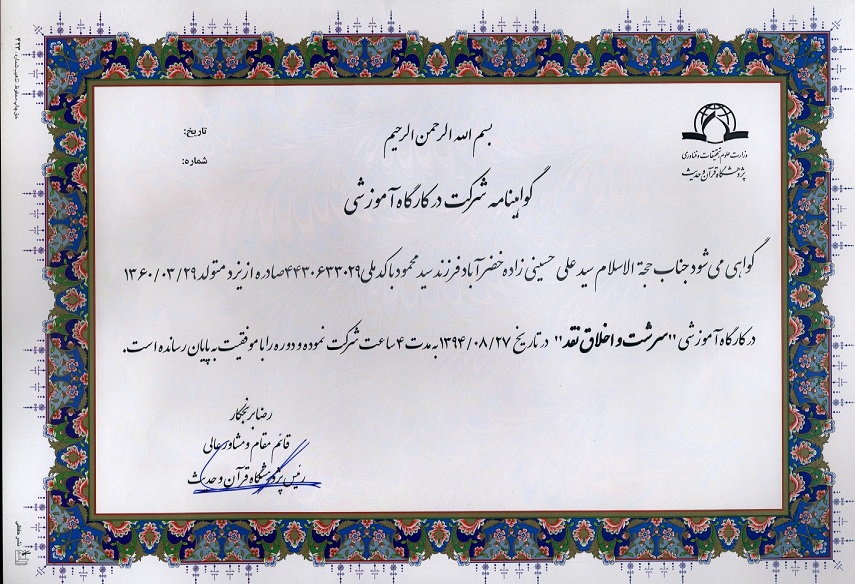 بسم الله الرحمن الرحیم
تاریخ:
شماره:
وزارت علوم، تحقیقات و فناوری
پژوهشگاه قرآن و حدیث
گواهینامه شرکت در کارگاه آموزشی
گواهی می شود جناب حجة الاسلام سید علی حسینی زاده خضرآباد فرزند سید محمود با کد ملی ۴۴۳۰۶۳۳۰۲۹ صادره از یزد متولد ۱۳۶۰/۰۳/۲۹
در کارگاه آموزشی "سرشت و اخلاق نقد" در تاریخ ۱۳۹۴/۰۸/۲۷ به مدت ۴ ساعت شرکت نموده و دوره را با موفقیت به پایان رسانده است.
رضا برنجکار
قائم مقام و مشاور عالی
رئیس پژوهشگاه قرآن و حدیث